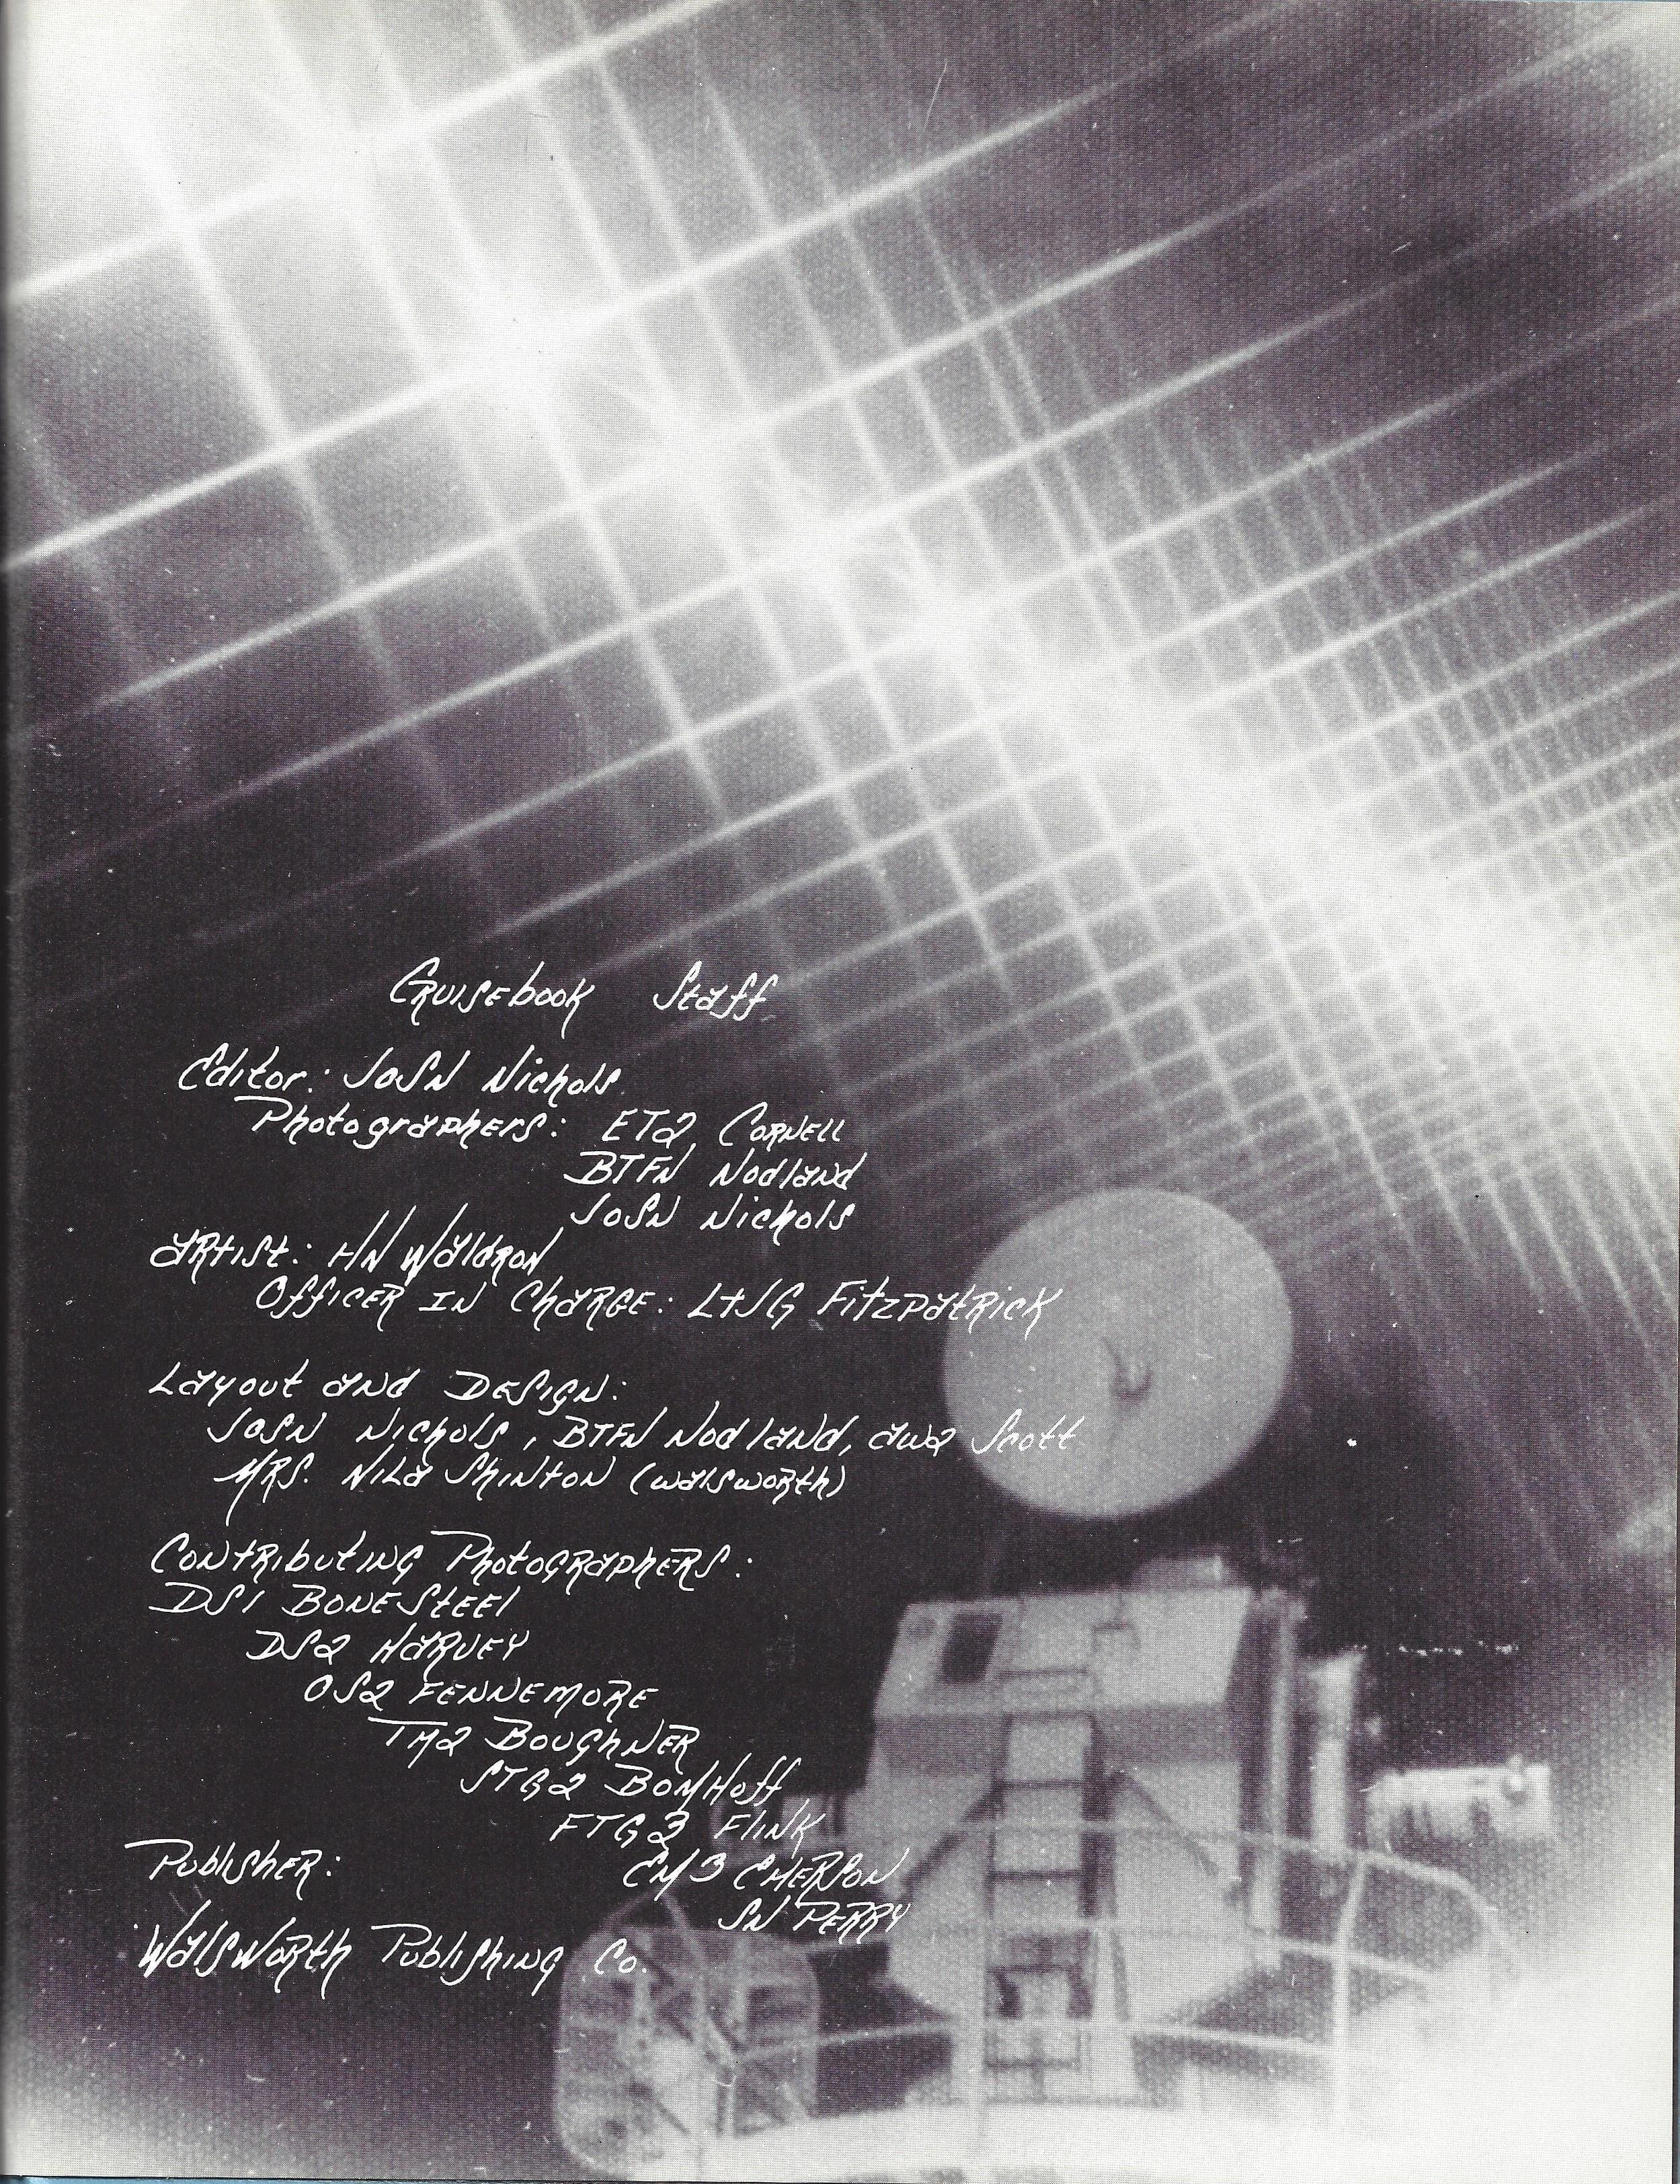 Cruisebook Staff
Editor: JOSN Nichols
Photographers: ET2 Cornell
BTFN Nodland
JOSN Nichols
Artist: HN Waldron
Officer in Charge: LtJG Fitzpatrick
Layout and Design:
JOSN Nichols, BTFN Nodland, AW2 Scott
Mrs. Nila Shinton (Walsworth)
Contributing Photographers:
DS1 Bonesteel
DS2 Harvey
OS2 Fennemore
TM2 Boughner
STG2 Bomhoff
FTG3 Flink
Publisher: EM3 Emerson
SN Perry
Walsworth Publishing Co.